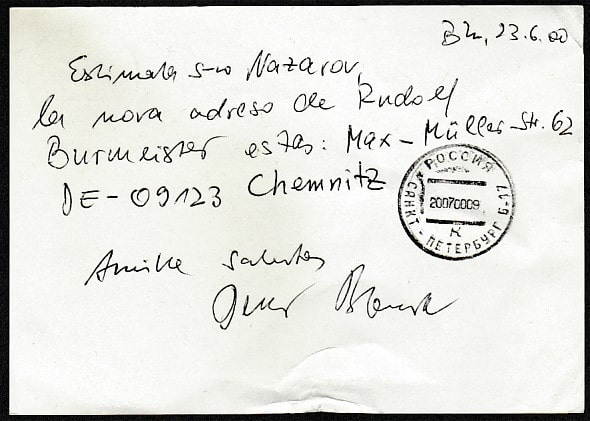 Bln, 23.6.00
Estimata s-ro Nazarov,
la nova adreso de Rudolf
Burmeister estas: Max-Müller-Str. 62
DE-09123 Chemnitz
РОССИЯ
САНКТ-ПЕТЕРБУРГ Б-17
20070009
К
Amike salutas